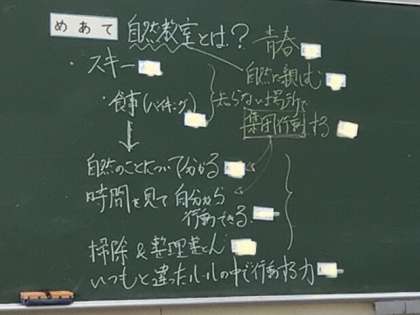 めあて 自然教室とは? 青春
・スキー 自然に親しむ
・食事(バイキング) 知らない場所で
集団行動する
自然のことについて分かる
時間を見て自分から
行動できる
掃除&整理整とん
いつもと違ったルールの中で行動する力